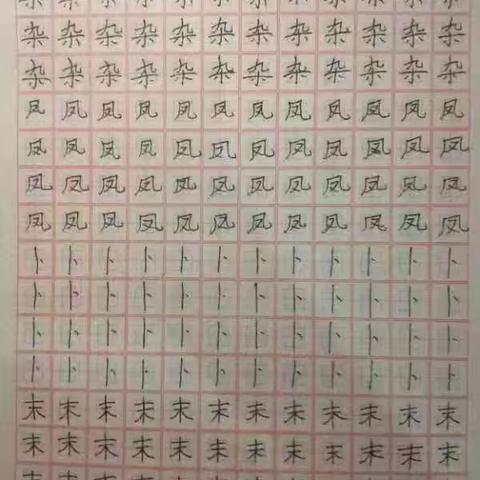 杂杂杂杂杂杂杂杂杂杂杂杂
杂杂杂杂杂杂杂杂杂杂杂杂
凤凤凤凤凤凤凤凤凤凤凤凤
凤凤凤凤凤凤凤凤凤凤凤凤
凤凤凤凤凤凤凤凤凤凤凤凤
凤凤凤凤凤凤凤凤凤凤凤凤
卜卜卜卜卜卜卜卜卜卜卜卜
卜卜卜卜卜卜卜卜卜卜卜卜
卜卜卜卜卜卜卜卜卜卜卜卜
卜卜卜卜卜卜卜卜卜卜卜卜
末末末末末末末末末末末末
末末末末末末末末末末末末